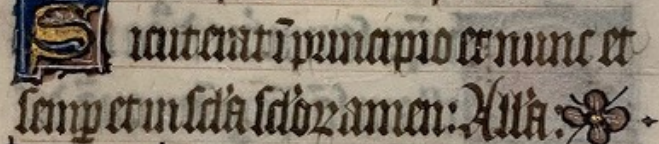 Sicut erat ī principio et nunc et
semꝑ et in scl̃a scl̃oꝝ amen: All'a: